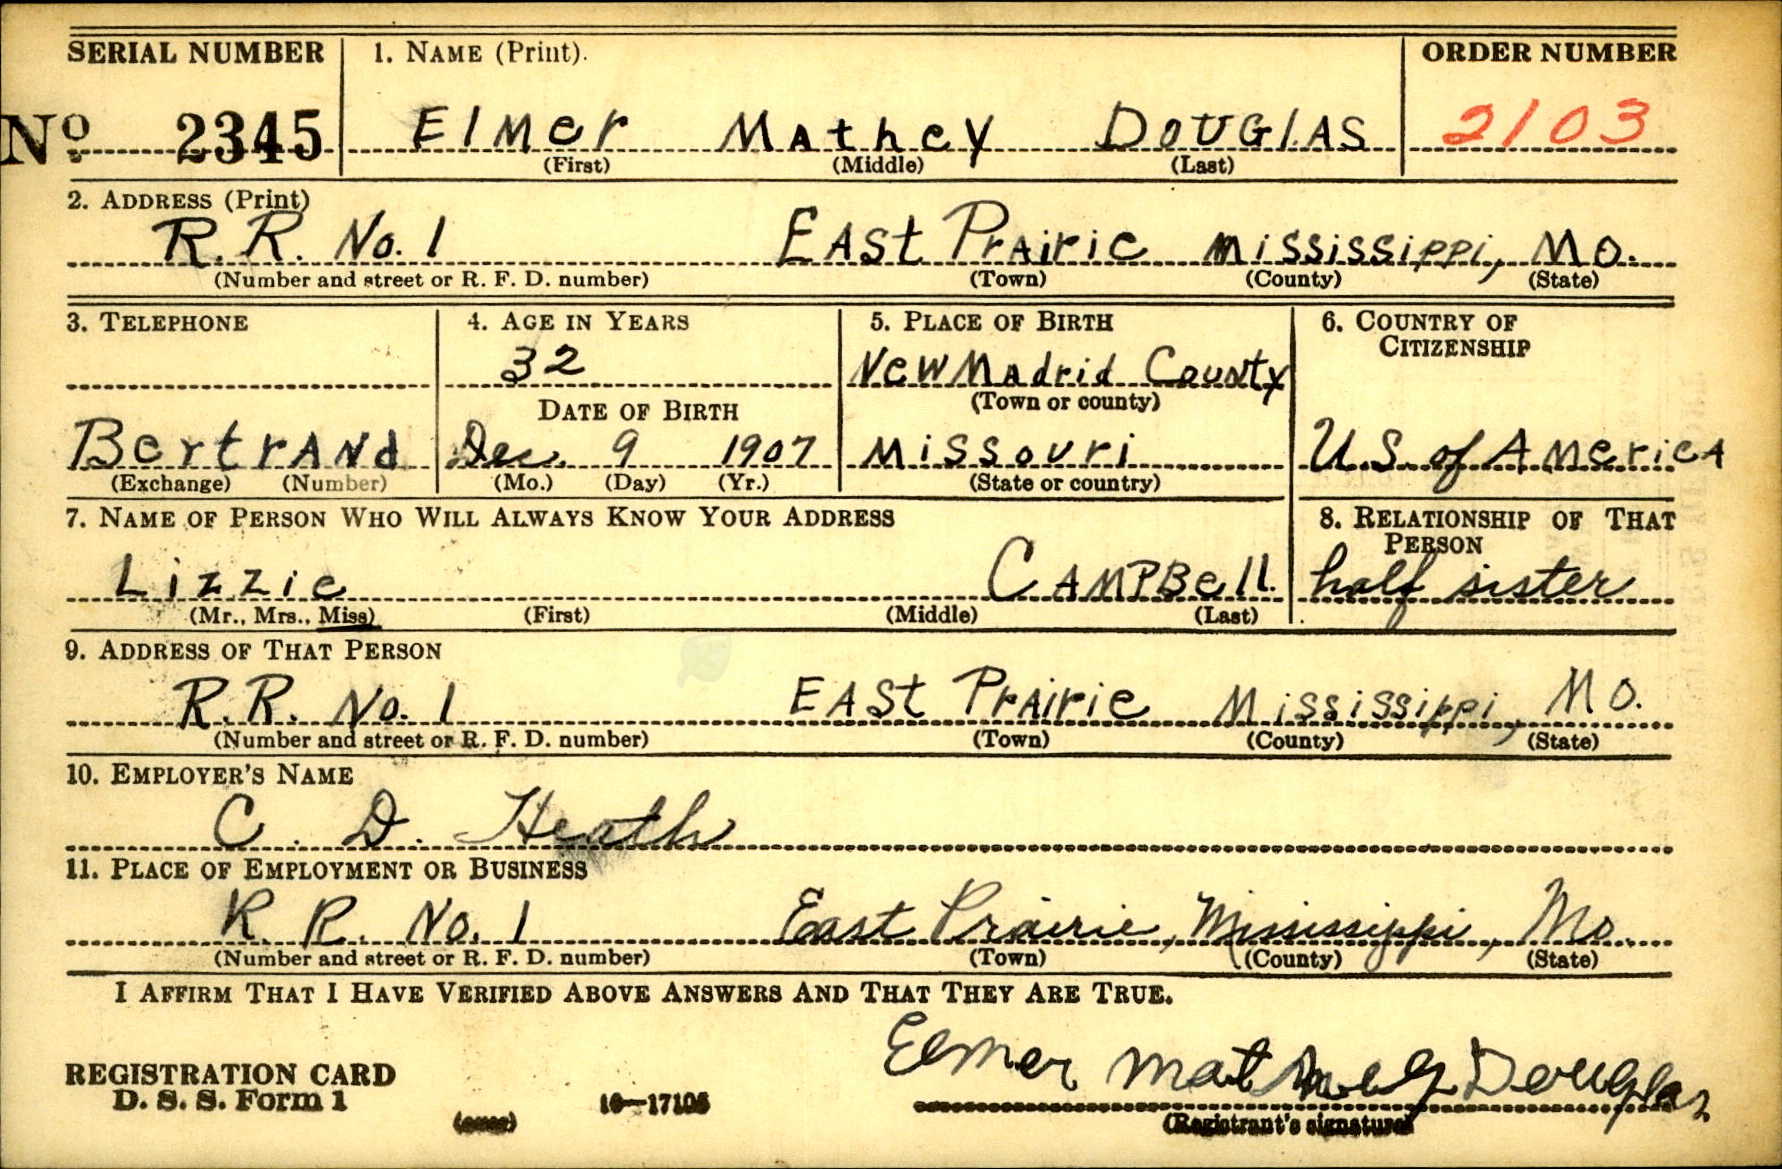 SERIAL NUMBER 1. NAME (Print). ORDER NUMBER
No. 2345 Elmer Mathey Douglas 2103
(First) (Middle) (Last)
2. ADDRESS (Print)
R. R. No. 1 East Prairie Mississippi, Mo.
(Number and street or R. F. D. number) (Town) (County) (State)
3. TELEPHONE 4. AGE IN YEARS 5. PLACE OF BIRTH 6. COUNTRY OF
CITIZENSHIP
32 New Madrid County
(Town or county)
DATE OF BIRTH
Bertrand Dec. 9 1907 Missouri U.S. of America
(Exchange) (Number) (Mo.) (Day) (Yr.) (State or country)
7. NAME OF PERSON WHO WILL ALWAYS KNOW YOUR ADDRESS 8. RELATIONSHIP OF THAT
PERSON
Lizzie Campbell half sister
(Mr., Mrs., Miss) (First) (Middle) (Last)
9. ADDRESS OF THAT PERSON
R. R. No. 1 East Prairie Mississippi, Mo.
(Number and street or R. F. D. number) (Town) (County) (State)
10. EMPLOYER'S NAME
C. D. Heath
11. PLACE OF EMPLOYMENT OR BUSINESS
R. R. No. 1 East Prairie, Mississippi, Mo.
(Number and street or R. F. D. number) (Town) (County) (State)
I AFFIRM THAT I HAVE VERIFIED ABOVE ANSWERS AND THAT THEY ARE TRUE.
Elmer Mathey Douglas
REGISTRATION CARD
D. S. S. Form 1
(over) 16—17105 (Registrant's signature)